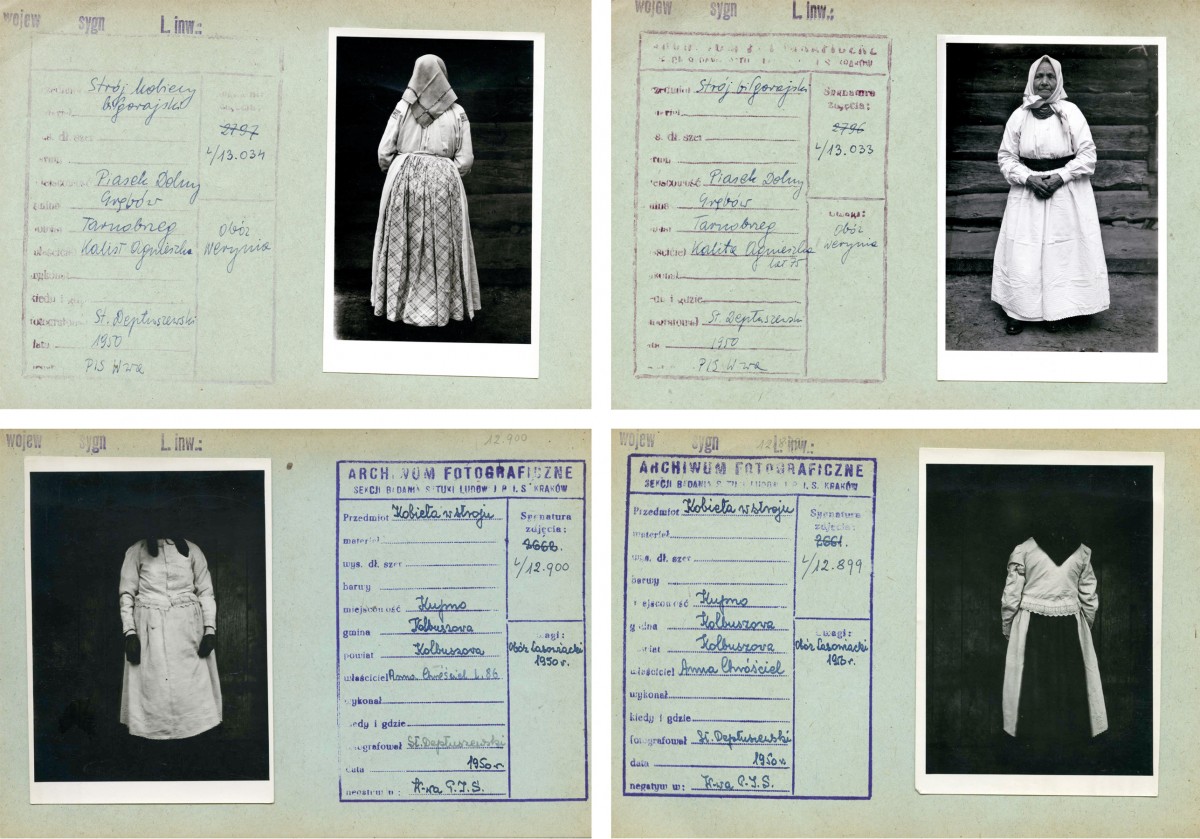 wojew sygn L. inw.:
Strój kobiecy
biłgorajski
2797
4/13.034
Piasek Dolny
Grębów
Tarnobrzeg
Obóz
Werynia
St. Deptuszewski
1950
PIS W-wa
wojew sygn L. inw.:
Strój biłgorajski
Sygnatura
zdjęcia:
2796
4/13.033
Piasek Dolny
Grębów
Tarnobrzeg
Uwagi:
Obóz
Werynia
Kalita Agnieszka
lat 75
St. Deptuszewski
1950
PIS W-wa
wojew sygn L. inw.:
12.900
ARCHIWUM FOTOGRAFICZNE
SEKCJI BADANIA SZTUKI LUDOWEJ P.I.S. KRAKÓW
Przedmiot Kobieta w stroju
materiał
wys. dł. szer
barwy
miejscowość Kupno
gmina Kolbuszowa
powiat Kolbuszowa
właściciel Anna Chróściel L. 86
wykonał
kiedy i gdzie
fotografował St. Deptuszewski
data 1950 r.
negatyw w: W-wa P.I.S.
Sygnatura
zdjęcia:
2662.
4/12.900
Uwagi:
Obóz Lasowiacki
1950 r.
wojew sygn L. inw.:
ARCHIWUM FOTOGRAFICZNE
SEKCJI BADANIA SZTUKI LUDOWEJ P.I.S. KRAKÓW
Przedmiot Kobieta w stroju
materiał
wys. dł. szer
barwy
miejscowość Kupno
gmina Kolbuszowa
powiat Kolbuszowa
właściciel Anna Chróściel
wykonał
kiedy i gdzie
fotografował St. Deptuszewski
data 1950 r.
negatyw w: W-wa P.I.S.
Sygnatura
zdjęcia:
2661.
4/12.899
Uwagi:
Obóz Lasowiacki
1950 r.